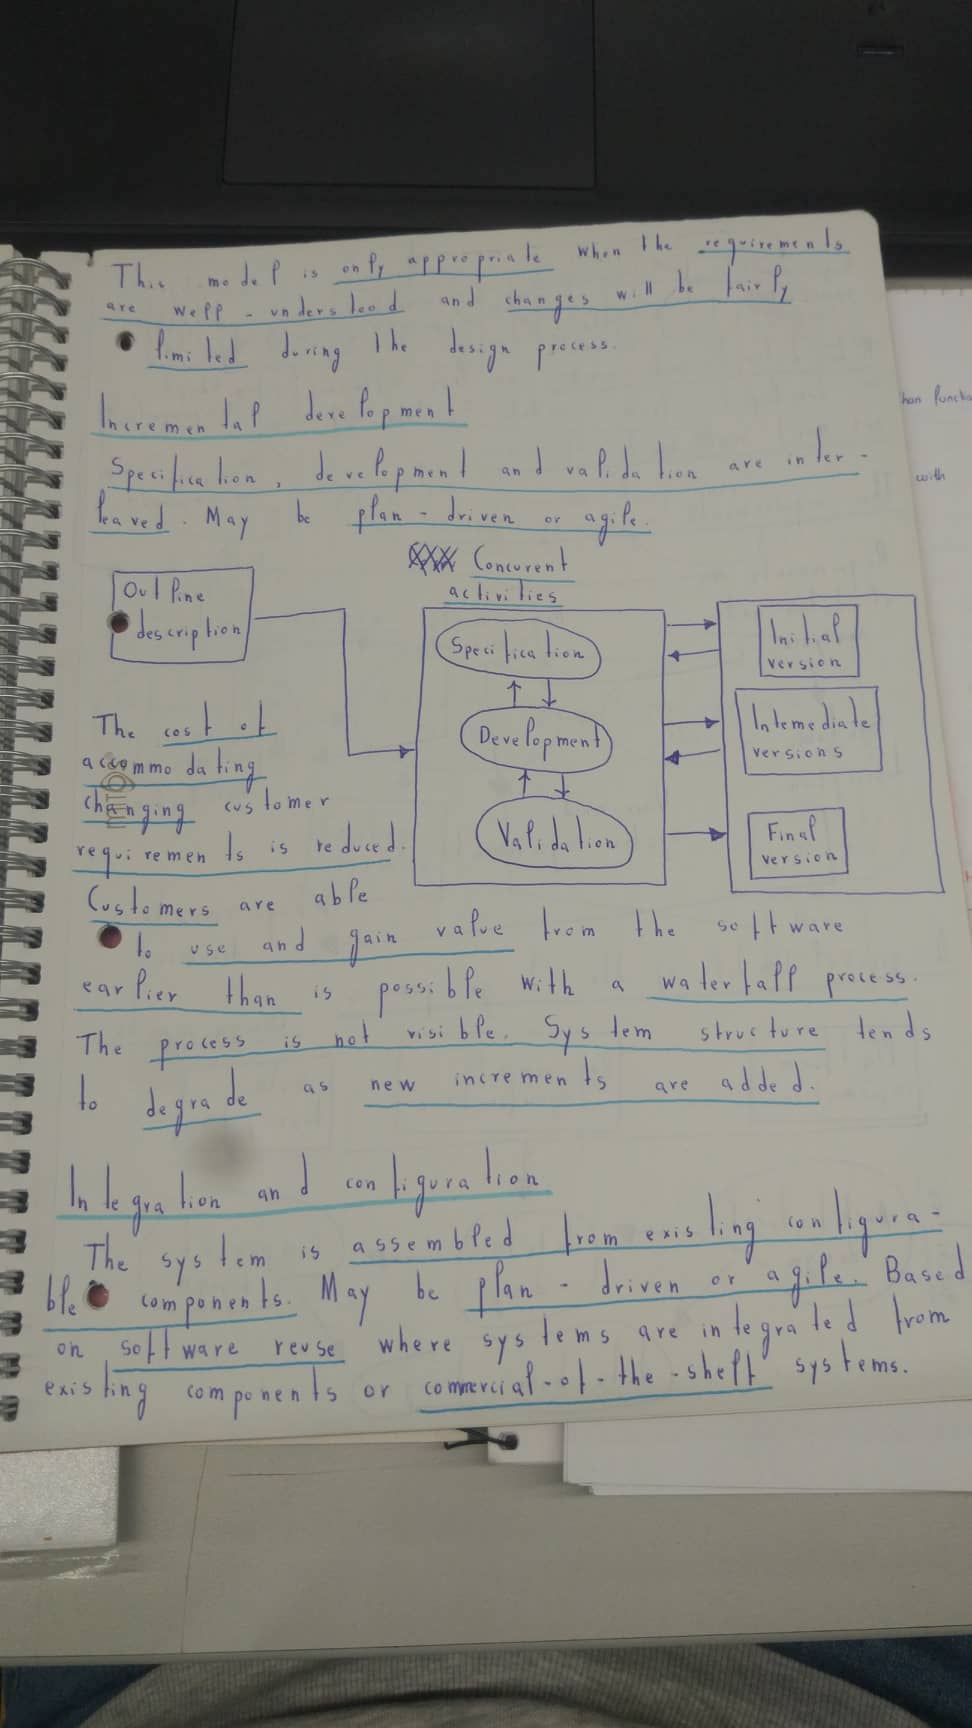 This model is only appropriate when the requirements
are well-understood and changes will be fairly
limited during the design process.
Incremental development
Specification, development and validation are inter-
leaved. May be plan-driven or agile.
Concurent
activities
Outline
description
Specification
Development
Validation
Initial
version
Intemediate
versions
Final
version
The cost of
accommodating
changing customer
requirements is reduced.
Customers are able
to use and gain value from the software
earlier than is possible with a waterfall process.
The process is not visible. System structure tends
to degrade as new increments are added.
Integration and configuration
The system is assembled from existing configura-
ble components. May be plan-driven or agile. Based
on software reuse where systems are integrated from
existing components or commercial-of-the-shelf systems.
with